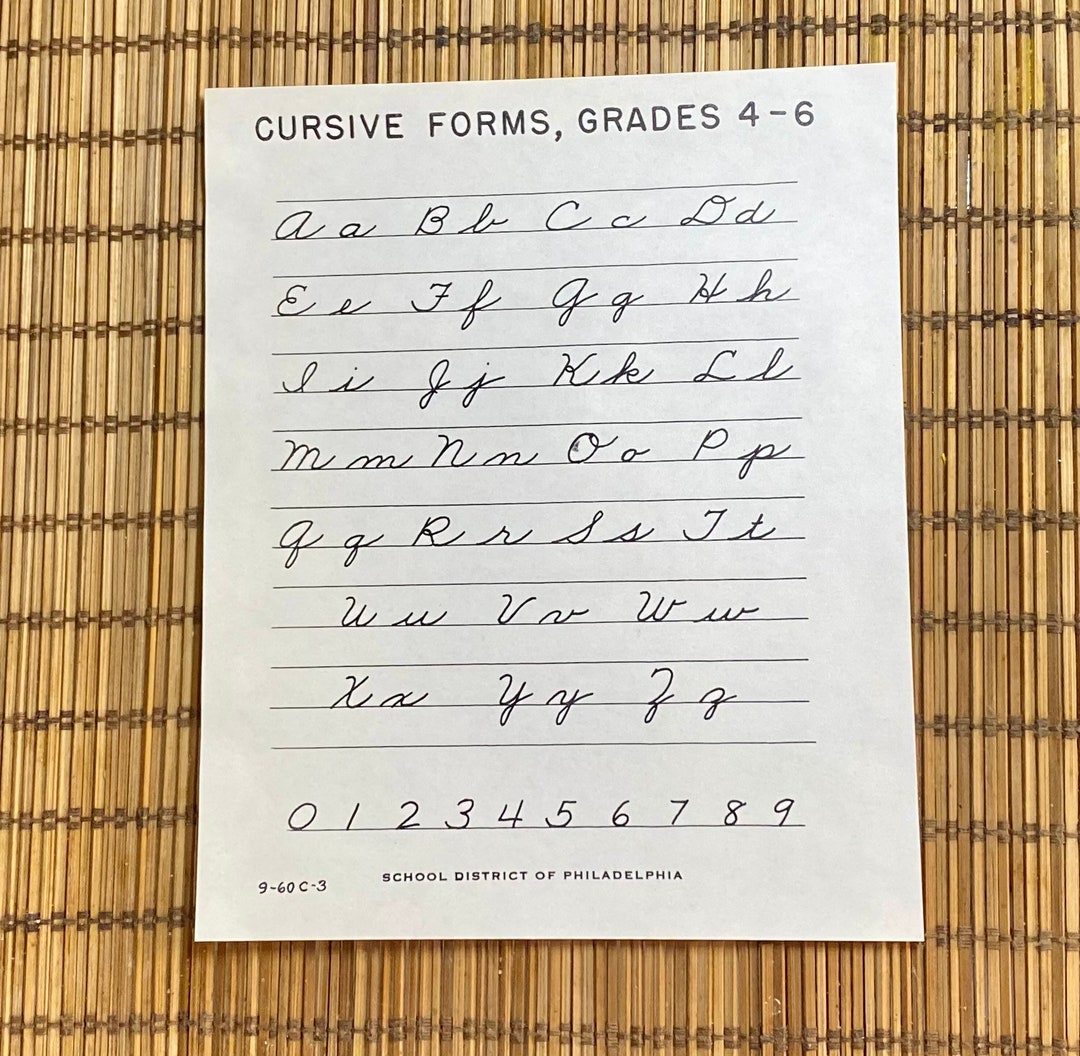 CURSIVE FORMS, GRADES 4-6
A a B b C c D d
E e F f G g H h
I i J j K k L l
M m N n O o P p
Q q R r S s T t
U u V v W w
X x Y y Z z
0 1 2 3 4 5 6 7 8 9
SCHOOL DISTRICT OF PHILADELPHIA
9-60 C-3